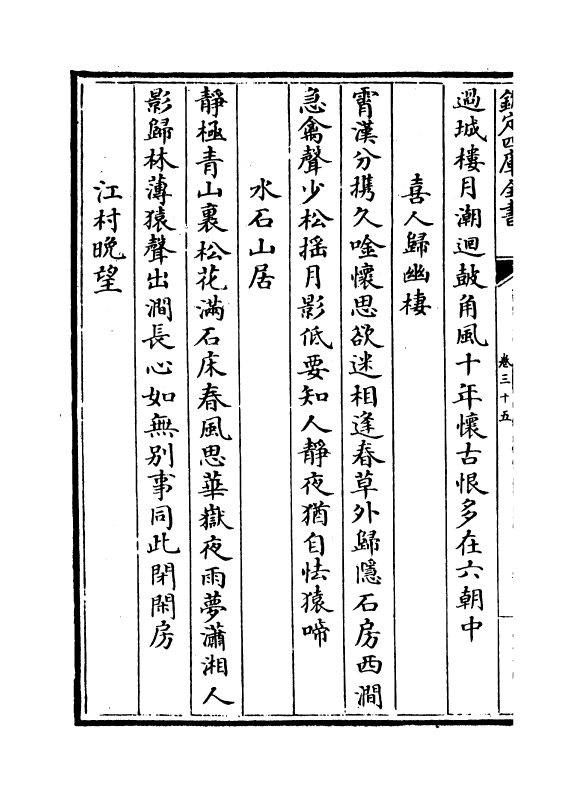 欽定四庫全書
卷三十五
過城樓月潮迴鼓角風十年懷古恨多在六朝中
喜人歸幽棲
霄漢分攜久唫懷思欲迷相逢春草外歸隱石房西澗
急禽聲少松搖月影低要知人靜夜猶自怯猿啼
水石山居
靜極青山裏松花滿石床春風思華嶽夜雨夢瀟湘人
影歸林薄猿聲出澗長心如無別事同此閉閑房
江村晚望